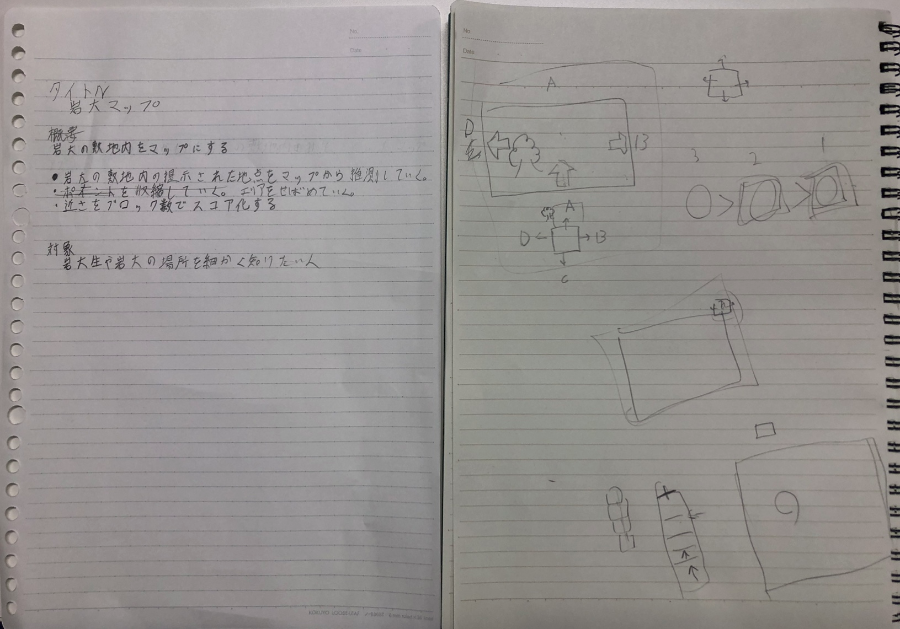 タイトル
岩大マップ
概要
岩大の敷地内をマップにする
● 岩大の敷地内の提示された地点をマップから推測していく。
・ポイントを収縮していく。エリアをせばめていく。
・近さをブロック数でスコア化する
対象
岩大生や岩大の場所を細かく知りたい人
No.
Date
A
D
B
A
D
B
C
3
2
1
> >